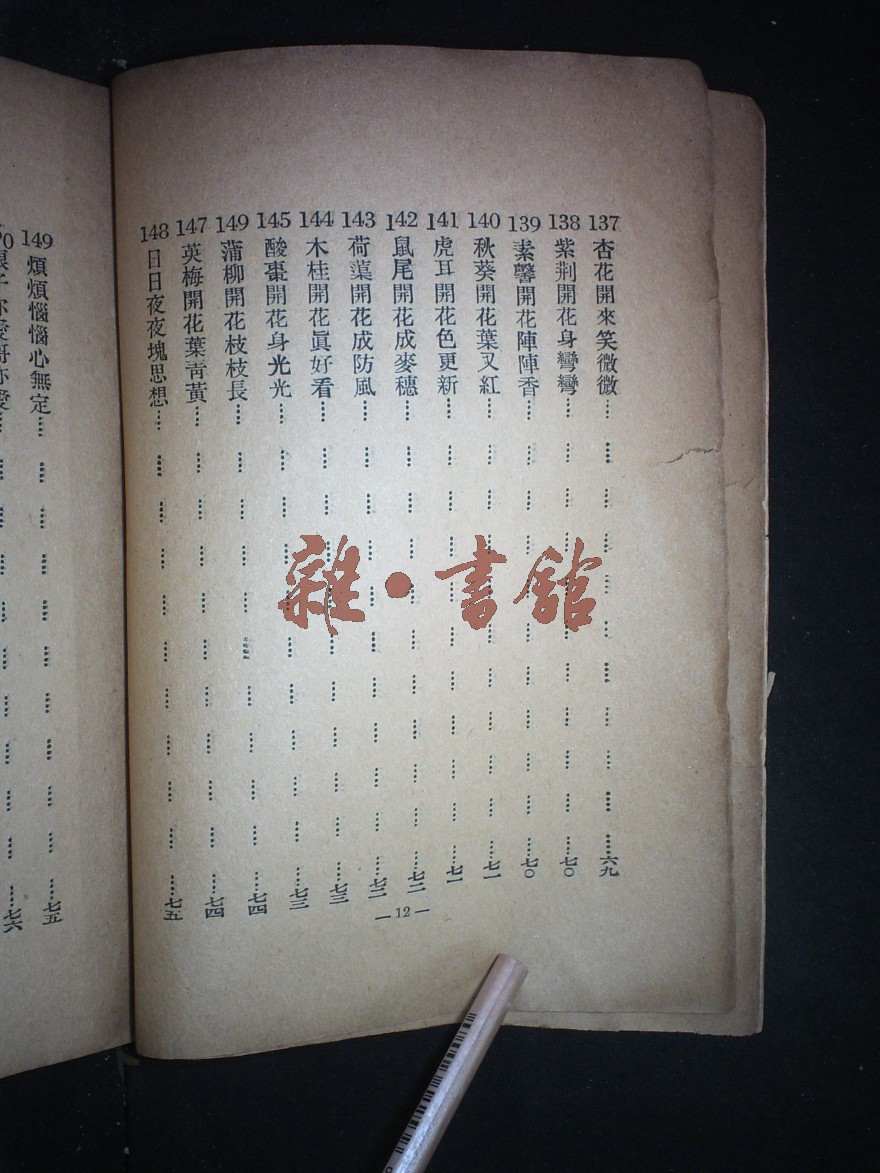 137 杏花開來笑微微 六九
138 紫荆開花身彎彎 七〇
139 素馨開花陣陣香 七〇
140 秋葵開花葉又紅 七一
141 虎耳開花色更新 七一
142 鼠尾開花成麥穗 七二
143 荷蕖開花成防風 七二
144 木桂開花眞好看 七三
145 酸棗開花身光光 七三
149 蒲柳開花枝枝長 七四
147 英梅開花葉靑黃 七四
148 日日夜夜塊思想 七五
—12—
149 煩煩惱惱心無定 七五
七六
雜·書館